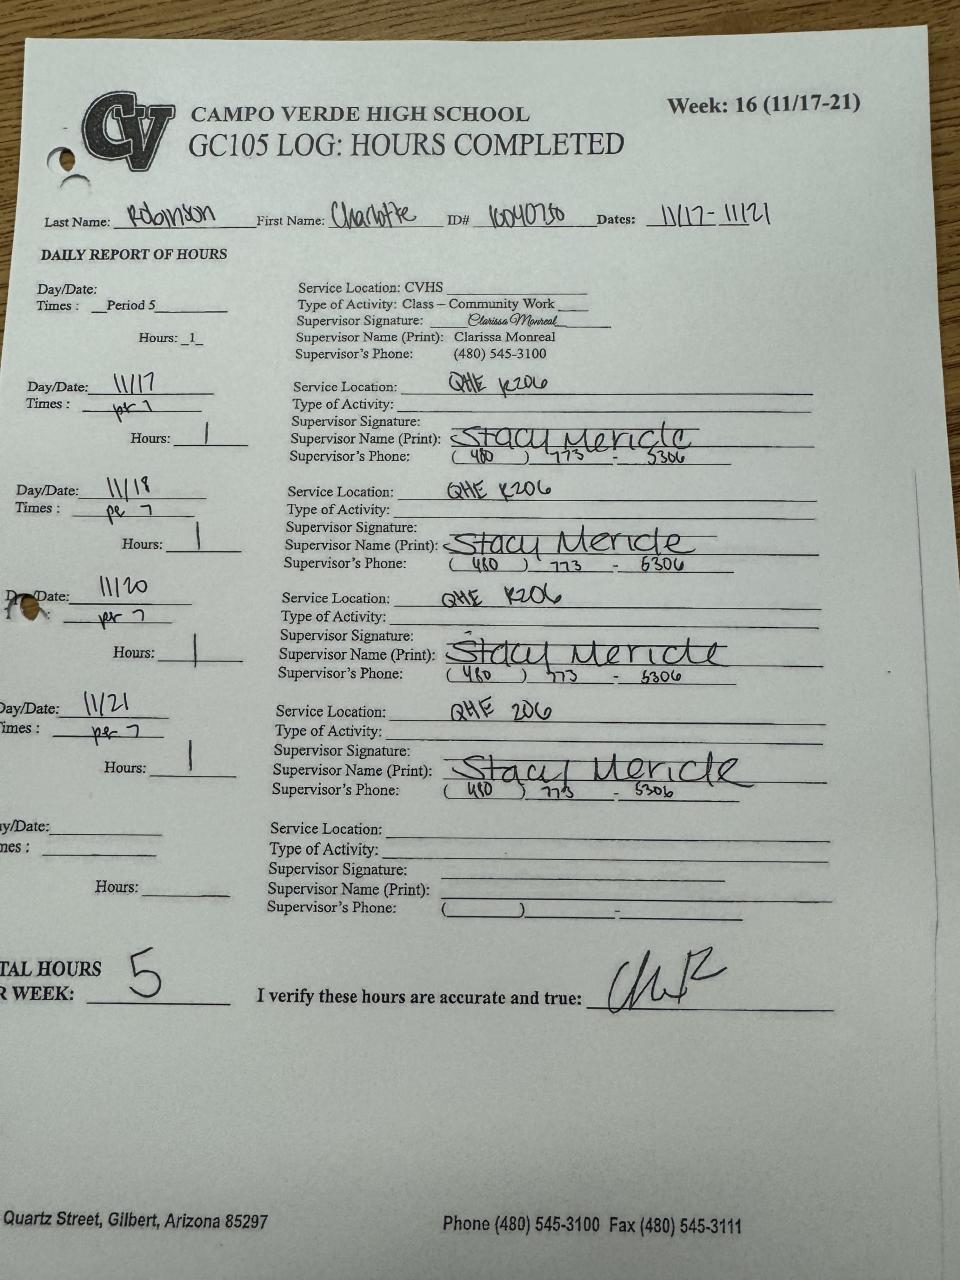 CV
CAMPO VERDE HIGH SCHOOL
Week: 16 (11/17-21)
GC105 LOG: HOURS COMPLETED
Last Name: Robinson First Name: Charlotte ID# Dates: 11/17-11/21
DAILY REPORT OF HOURS
Day/Date:
Times : Period 5
Hours: 1
Service Location: CVHS
Type of Activity: Class – Community Work
Supervisor Signature: Clarissa Monreal
Supervisor Name (Print): Clarissa Monreal
Supervisor's Phone: (480) 545-3100
Day/Date: 11/17
Times : per 7
Hours: 1
Service Location: QHE K206
Type of Activity:
Supervisor Signature:
Supervisor Name (Print): Stacy Mericle
Supervisor's Phone: (480) 773 - 5306
Day/Date: 11/18
Times : per 7
Hours: 1
Service Location: QHE K206
Type of Activity:
Supervisor Signature:
Supervisor Name (Print): Stacy Mericle
Supervisor's Phone: (480) 773 - 5306
Date: 11/20
per 7
Hours: 1
Service Location: QHE K206
Type of Activity:
Supervisor Signature:
Supervisor Name (Print): Stacy Mericle
Supervisor's Phone: (480) 773 - 5306
Day/Date: 11/21
imes : per 7
Hours: 1
Service Location: QHE 206
Type of Activity:
Supervisor Signature:
Supervisor Name (Print): Stacy Mericle
Supervisor's Phone: (480) 773 - 5306
y/Date:
nes :
Hours:
Service Location:
Type of Activity:
Supervisor Signature:
Supervisor Name (Print):
Supervisor's Phone: ( ) -
TAL HOURS
R WEEK: 5
I verify these hours are accurate and true:
Quartz Street, Gilbert, Arizona 85297
Phone (480) 545-3100 Fax (480) 545-3111